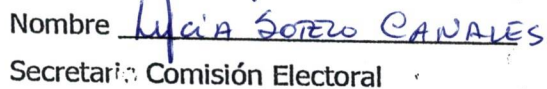 Nombre Lucia Sotelo Canales
Secretaria Comisión Electoral